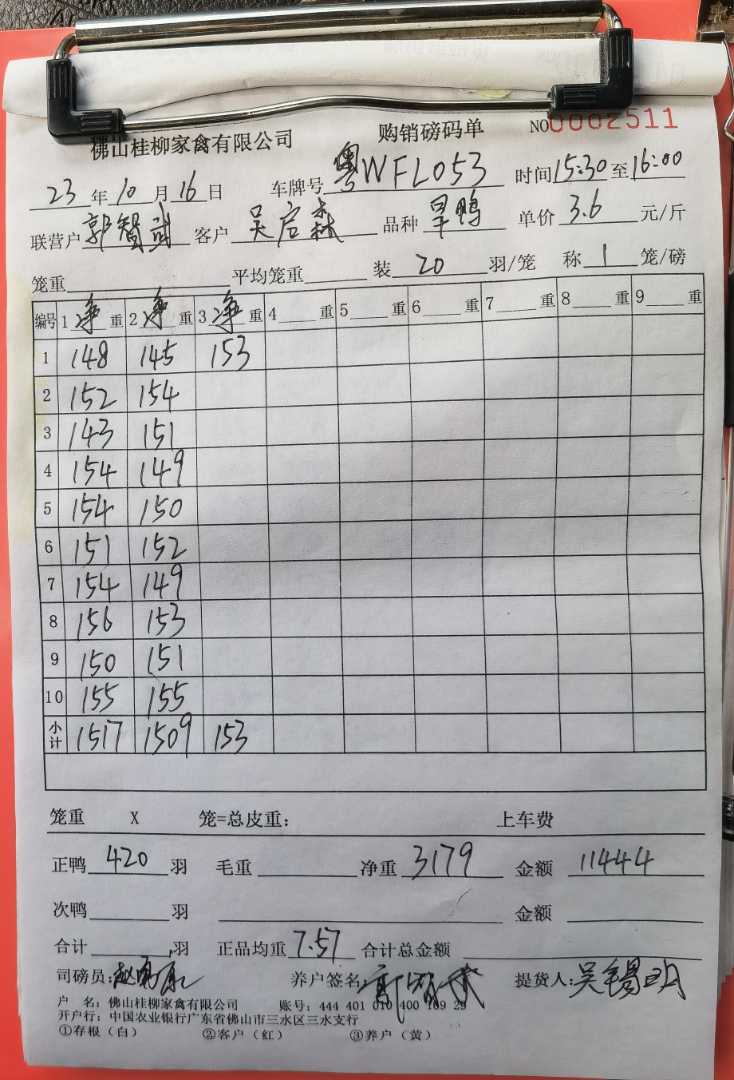 佛山桂柳家禽有限公司 购销磅码单 NO0002511
23 年 10 月 16 日 车牌号 粤WFL053 时间 15:30 至 16:00
联营户 郭智武 客户 吴启森 品种 旱鸭 单价 3.6 元/斤
笼重 平均笼重 装 20 羽/笼 称 1 笼/磅
编号 1 净 重 2 净 重 3 净 重 4 重 5 重 6 重 7 重 8 重 9 重
1 148 145 153
2 152 154
3 143 151
4 154 149
5 154 150
6 151 152
7 154 149
8 156 153
9 150 151
10 155 155
小计 1517 1509 153
笼重 X 笼=总皮重: 上车费
正鸭 420 羽 毛重 净重 3179 金额 11444
次鸭 羽 金额
合计 羽 正品均重 7.57 合计总金额
司磅员: 养户签名 提货人: 吴锡明
户 名: 佛山桂柳家禽有限公司 账号: 444 401 010 400 169 29
开户行: 中国农业银行广东省佛山市三水区三水支行
①存根(白) ②客户(红) ③养户(黄)